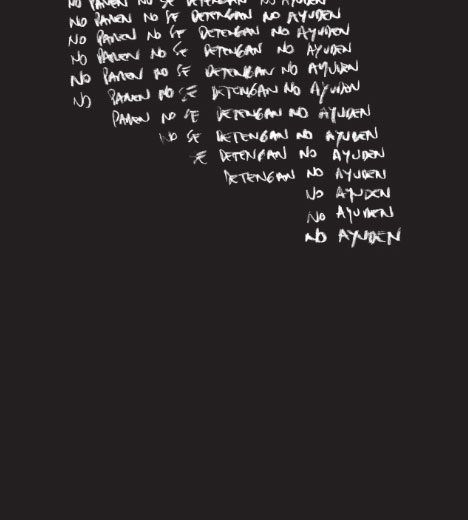 NO PAREN NO SE DETENGAN NO AYUDEN
NO PAREN NO SE DETENGAN NO AYUDEN
NO PAREN NO SE DETENGAN NO AYUDEN
NO PAREN NO SE DETENGAN NO AYUDEN
NO PAREN NO SE DETENGAN NO AYUDEN
NO PAREN NO SE DETENGAN NO AYUDEN
PAREN NO SE DETENGAN NO AYUDEN
NO SE DETENGAN NO AYUDEN
SE DETENGAN NO AYUDEN
DETENGAN NO AYUDEN
NO AYUDEN
NO AYUDEN
NO AYUDEN